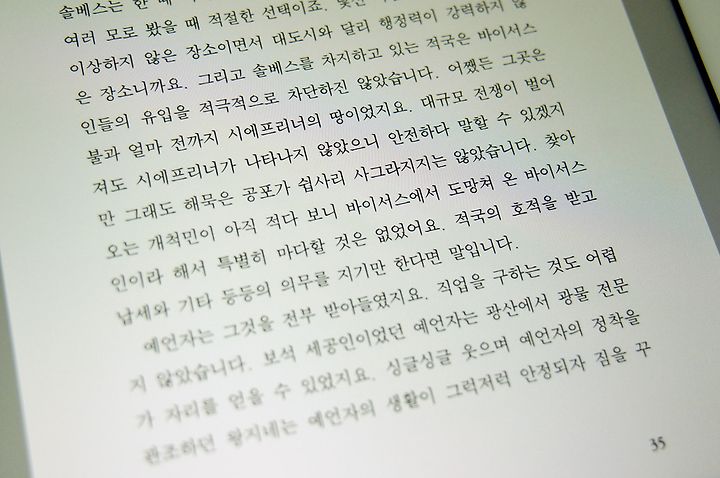 솔베스는 한 때
여러 모로 봤을 때 적절한 선택이죠.
이상하지 않은 장소이면서 대도시와 달리 행정력이 강력하지 않
은 장소니까요. 그리고 솔베스를 차지하고 있는 적국은 바이서스
인들의 유입을 적극적으로 차단하진 않았습니다. 어쨌든 그곳은
불과 얼마 전까지 시에프리너의 땅이었지요. 대규모 전쟁이 벌어
져도 시에프리너가 나타나지 않았으니 안전하다 말할 수 있겠지
만 그래도 해묵은 공포가 쉽사리 사그라지지는 않았습니다. 찾아
오는 개척민이 아직 적다 보니 바이서스에서 도망쳐 온 바이서스
인이라 해서 특별히 마다할 것은 없었어요. 적국의 호적을 받고
납세와 기타 등등의 의무를 지기만 한다면 말입니다.
예언자는 그것을 전부 받아들였지요. 직업을 구하는 것도 어렵
지 않았습니다. 보석 세공인이었던 예언자는 광산에서 광물 전문
가 자리를 얻을 수 있었지요. 싱글싱글 웃으며 예언자의 정착을
관조하던 왕지네는 예언자의 생활이 그럭저럭 안정되자 짐을 꾸
35